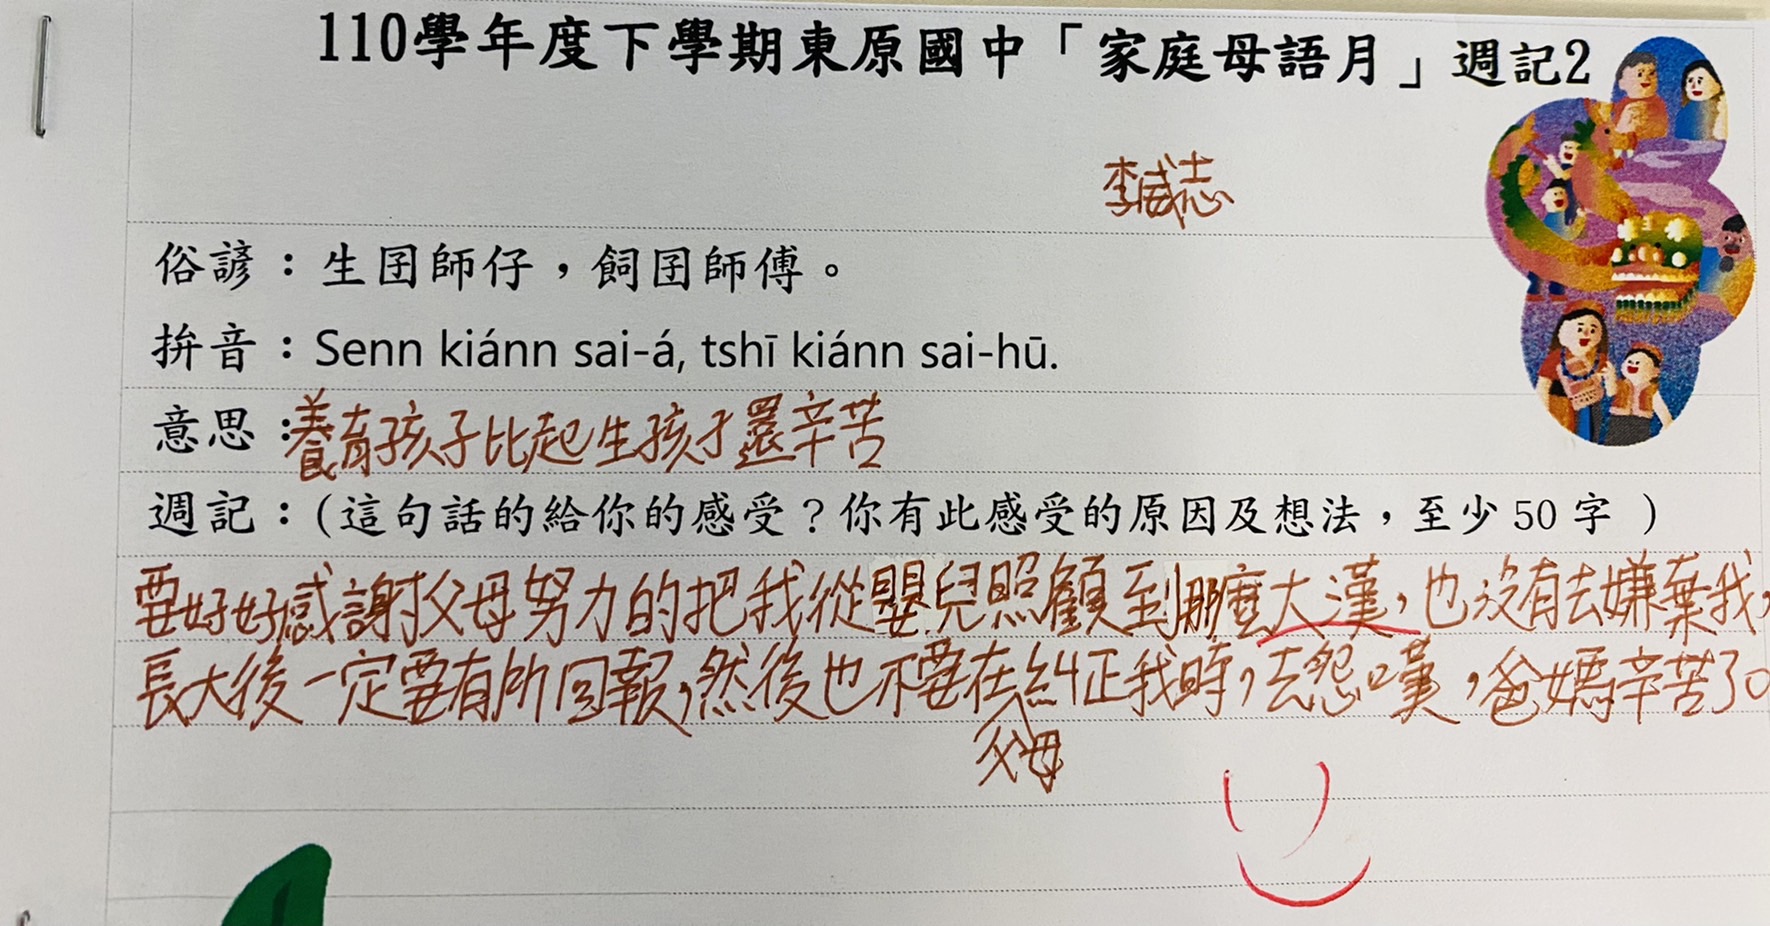 110學年度下學期東原國中「家庭母語月」週記2
李威志
俗諺：生囝師仔，飼囝師傅。
拚音：Senn kiánn sai-á, tshī kiánn sai-hū.
意思：養育孩子比起生孩子還辛苦
週記：(這句話的給你的感受？你有此感受的原因及想法，至少50字 )
要好好感謝父母努力的把我從嬰兒照顧到那麼大漢，也沒有去嫌棄我，
長大後一定要有所回報，然後也不要在糾正我時，去怨嘆，爸媽辛苦了。
父母